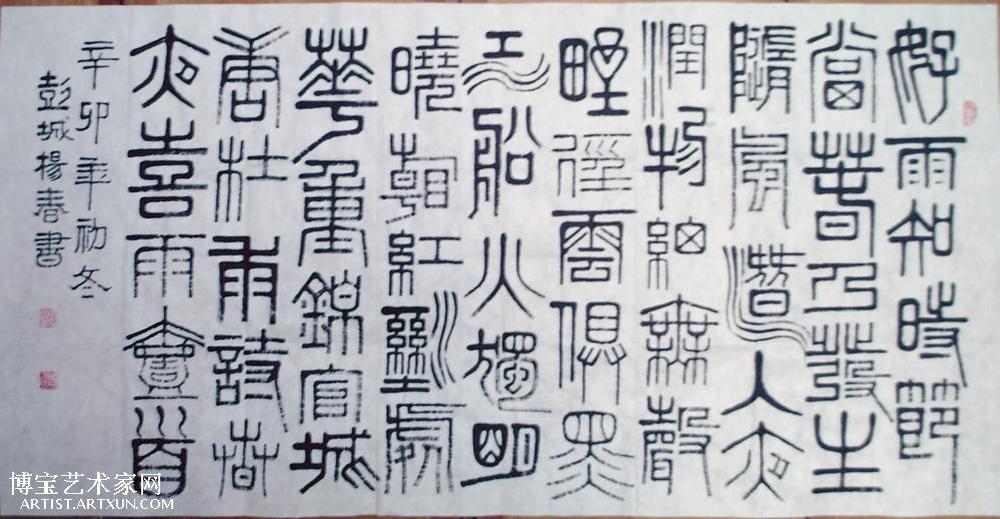 好雨知時節
當春乃發生
隨風潛入夜
潤物細無聲
野徑雲俱黑
江船火獨明
曉看紅濕處
華重錦官城
唐杜甫詩春
夜喜雨壹首
辛卯年初冬
彭城楊春書
博宝艺术家网
ARTIST.ARTXUN.COM